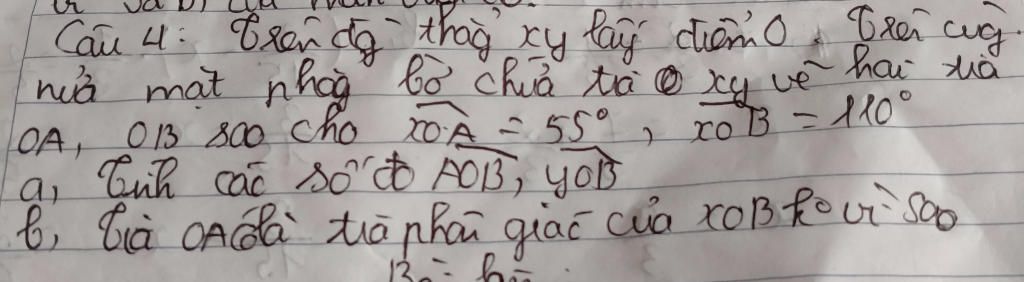 Câu 4: Trên đg thẳg xy lấy điểm O. Trên cùg
nửa mặt phẳg bờ chứa tia xy vẽ hai tia
OA, OB sao cho xOA = 55°, xOB = 110°
a, Tính các số đo AOB, yOB
b, Tia OA có là tia phân giác của xOB ko vì sao